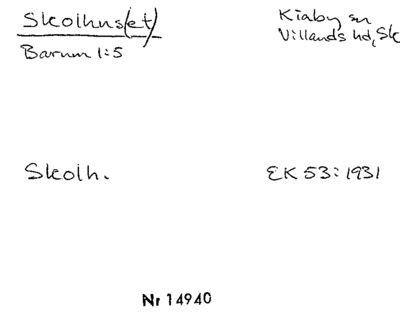 Skolhus(et)
Kiaby sn
Barum 1:5
Villands hd, Sk
Skolh.
EK 53:1931
Nr 14940